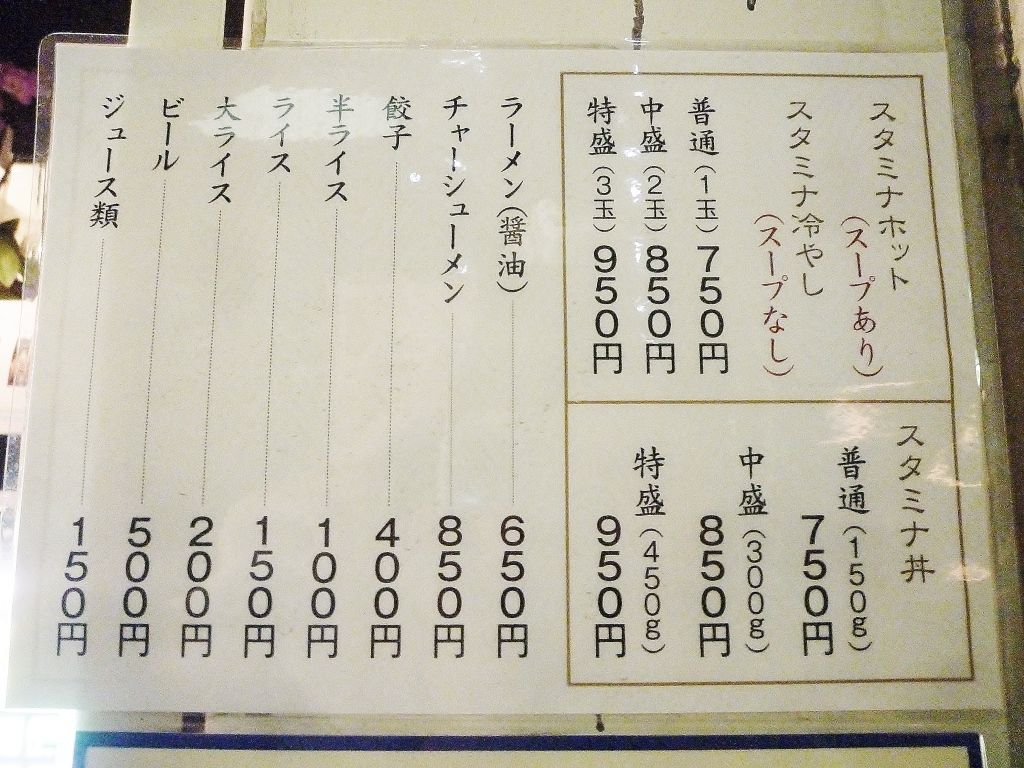 スタミナホット
（スープあり）
スタミナ冷やし
（スープなし）
普通（1玉）750円
中盛（2玉）850円
特盛（3玉）950円
スタミナ丼
普通（150g）
750円
中盛（300g）
850円
特盛（450g）
950円
ラーメン（醤油）650円
チャーシューメン850円
餃子400円
半ライス100円
ライス150円
大ライス200円
ビール500円
ジュース類150円